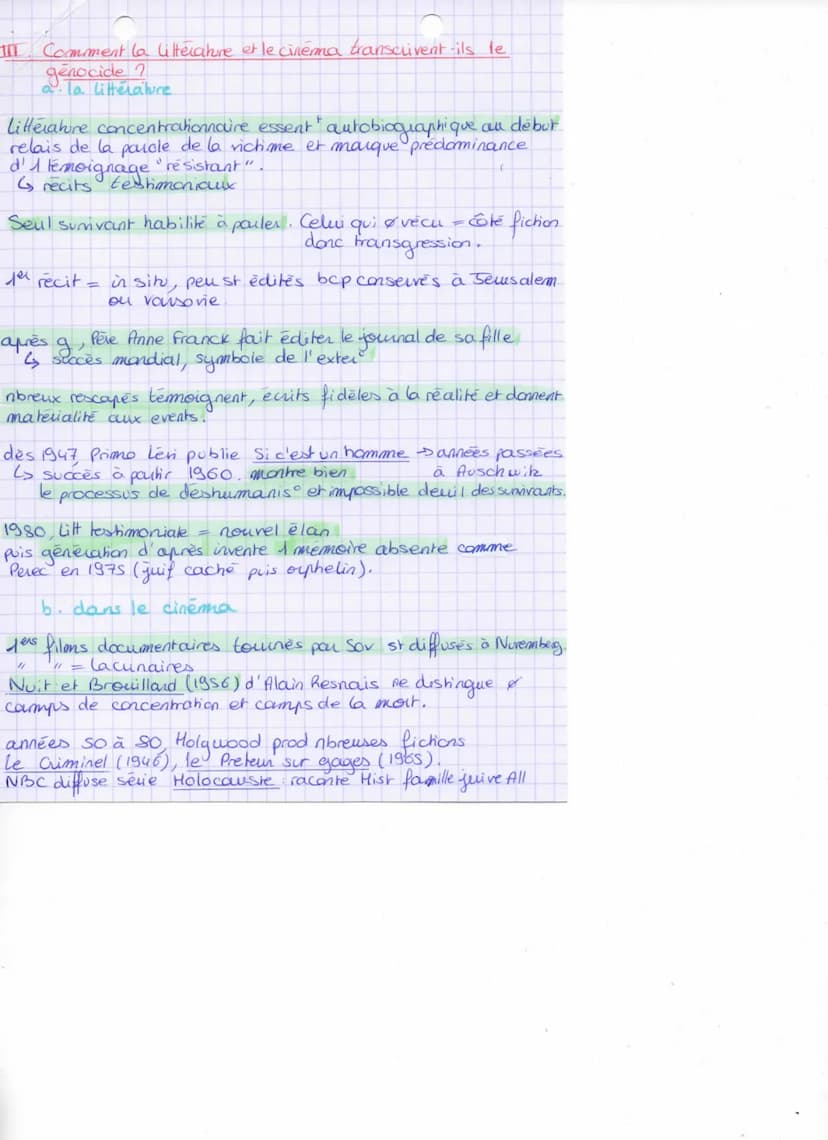 III. Comment la littérature et le cinéma transcrivent-ils le
génocide ?
a. la littérature
Littérature concentrationnaire essent^t autobiographique au début
relais de la parole de la victime et marque prédominance
d'1 témoignage "résistant".
↳ récits testimoniaux
Seul survivant habilité à parler. Celui qui ø vécu = côté fiction
donc transgression.
1er récit = in situ, peu st édités bcp conservés à Jérusalem
ou varsovie.
après g, Père Anne Franck fait éditer le journal de sa fille
↳ succès mondial, symbole de l'exter°
nbreux rescapés témoignent, écrits fidèles à la réalité et donnent
matérialité aux events.
dès 1947 Primo Lévi publie Si c'est un homme → années passées
↳ succès à partir 1960. montre bien à Auschwitz
le processus de déshumanis° et impossible deuil des survivants.
1980, Litt testimoniale = nouvel élan
puis génération d'après invente 1 mémoire absente comme
Perec en 1975 (juif caché puis orphelin).
b. dans le cinéma
1ers films documentaires tournés par Sov st diffusés à Nuremberg.
" " = lacunaires
Nuit et Brouillard (1956) d'Alain Resnais ne distingue ø
camps de concentration et camps de la mort.
années 50 à 80, Holywood prod nbreuses fictions
Le Criminel (1946), le Preteur sur gages (1965).
NBC diffuse série Holocauste raconte Hist famille juive All